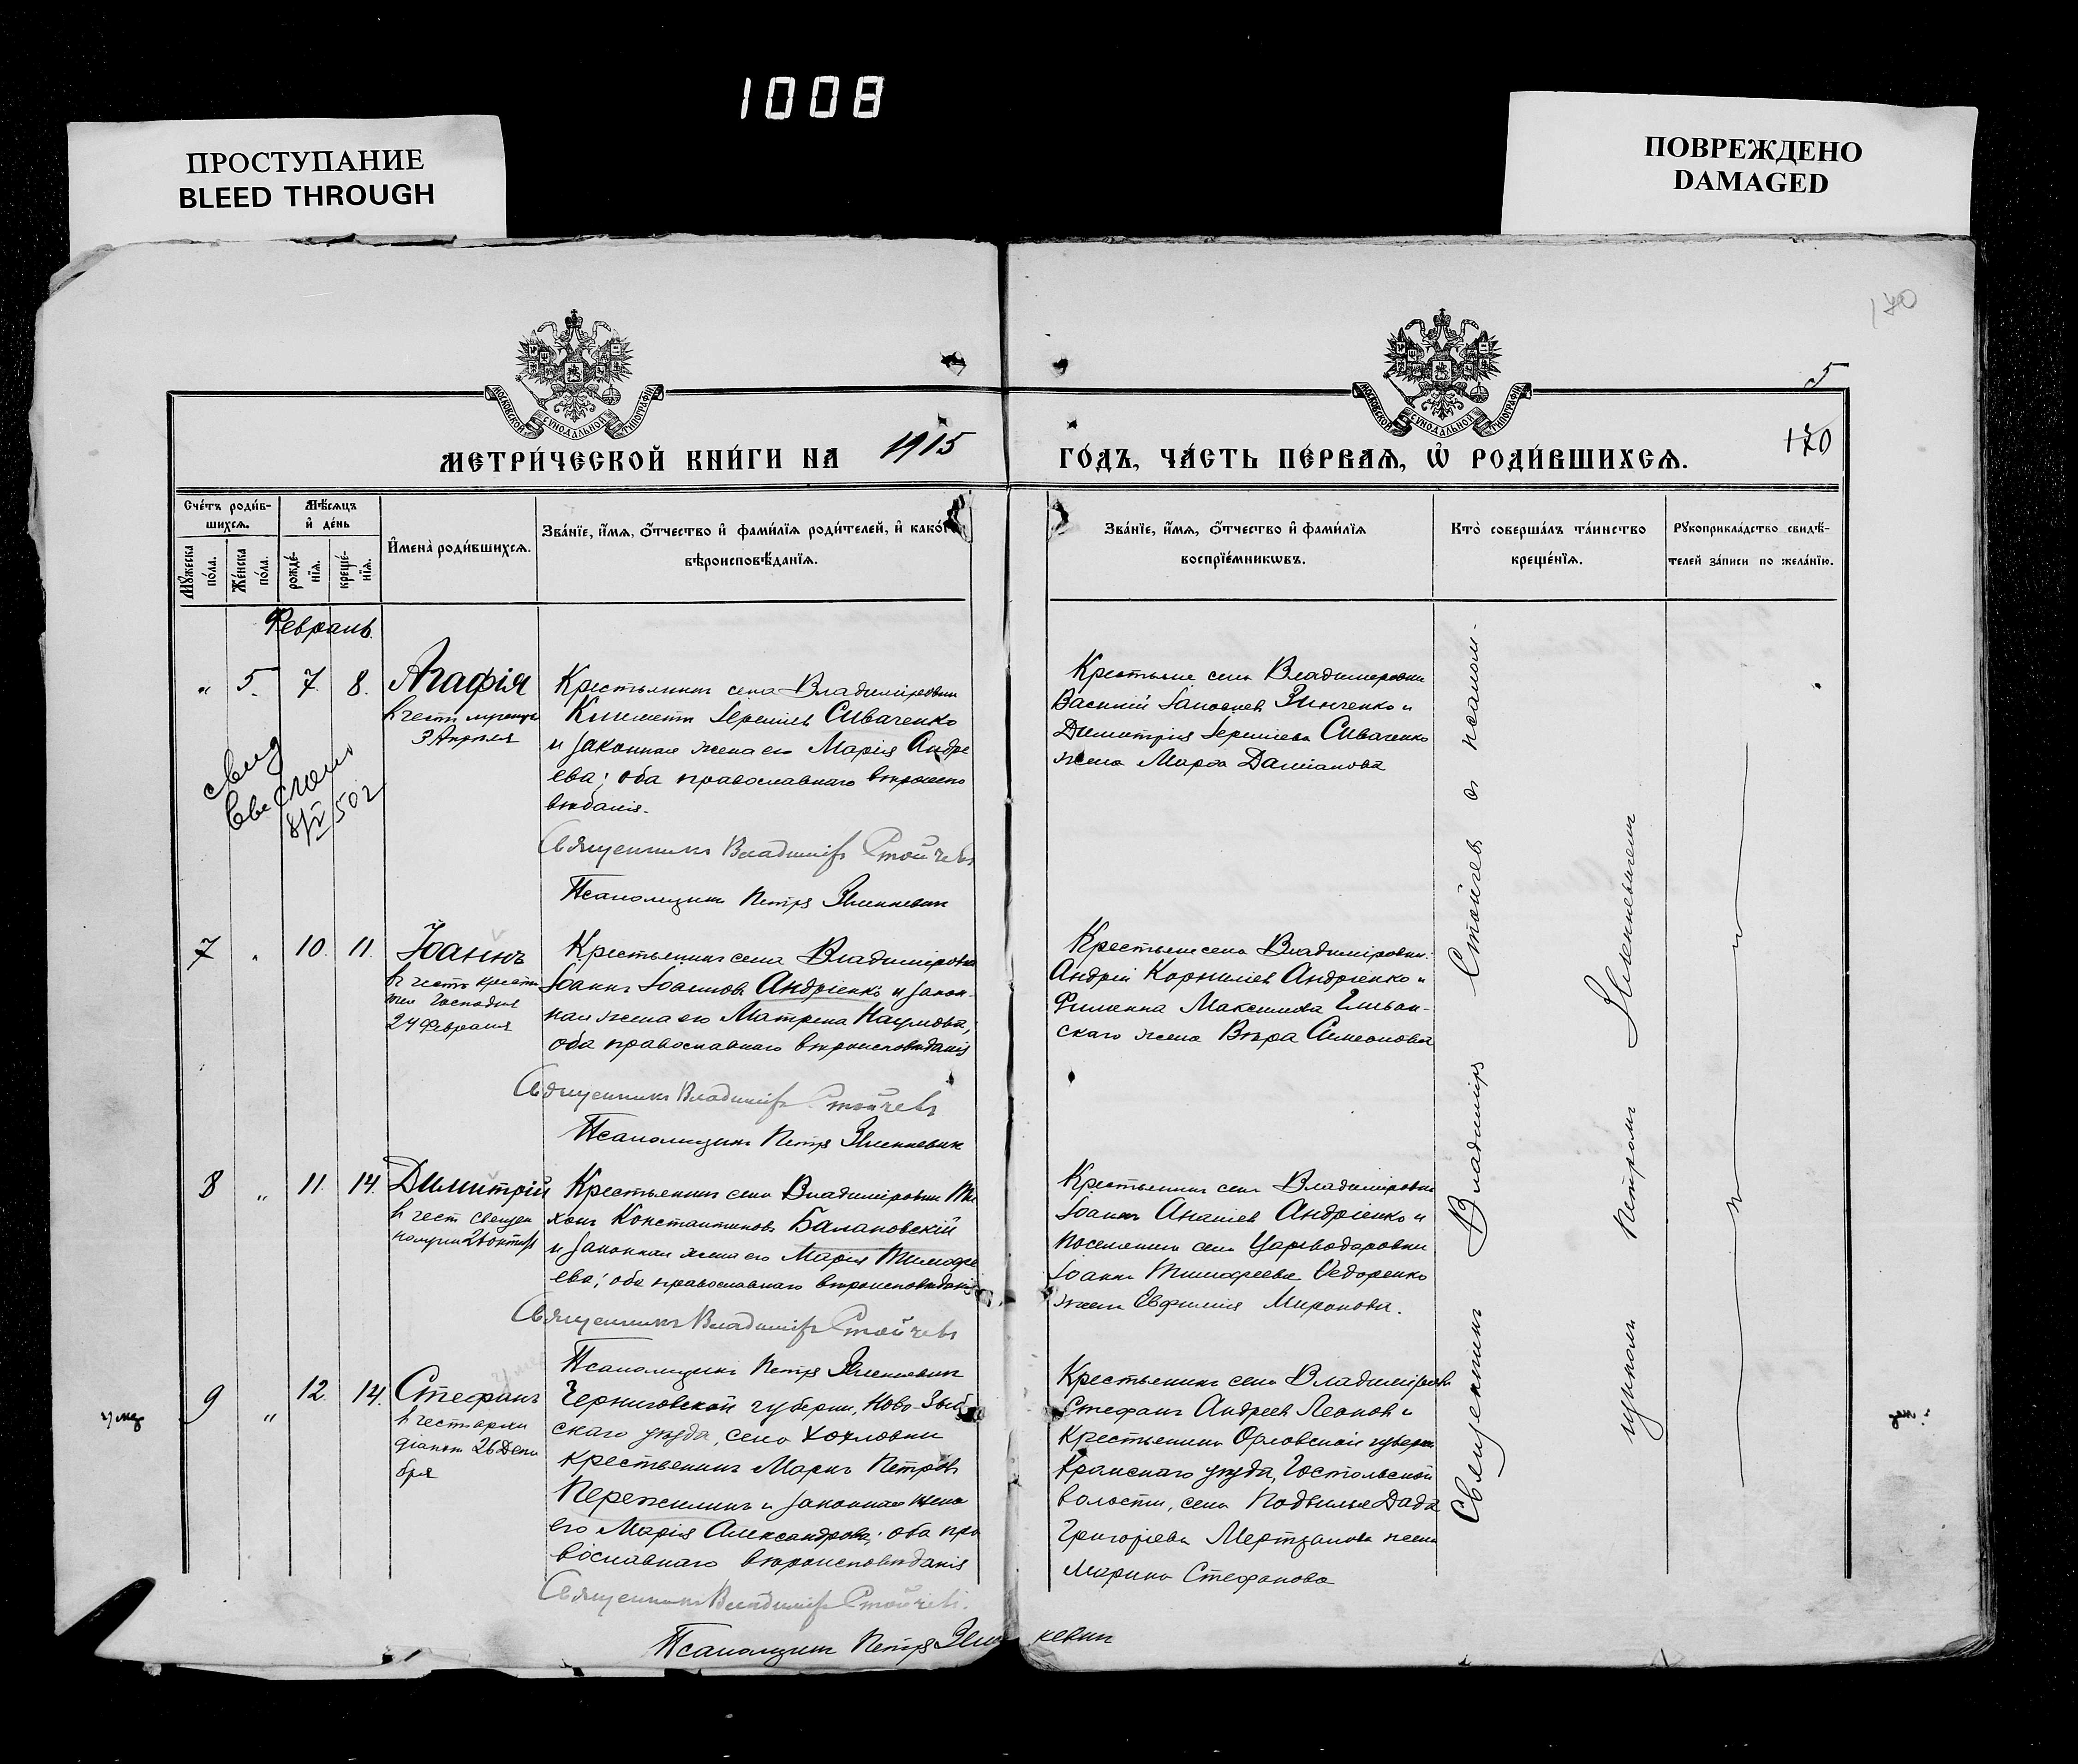 1008
ПРОСТУПАНИЕ
BLEED THROUGH
ПОВРЕЖДЕНО
DAMAGED
170
5
170
МОСКОВСКОЙ СѴНОДАЛЬНОЙ ТИПОГРАФІИ
МОСКОВСКОЙ СѴНОДАЛЬНОЙ ТИПОГРАФІИ
МЕТРИ́ЧЕСКОЙ КНИ́ГИ НА 1915
ГО́ДЪ, ЧА́СТЬ ПЕ́РВАѦ, Ѽ РОДИ́ВШИХСѦ.
Сче́тъ роди́в-
шихсѧ.
Мѣ́сѧцъ
и҆ де́нь
Мꙋ́жеска по́ла.
Же́нска по́ла.
рожде́-
нїѧ.
креще́-
нїѧ.
И҆мена̀ роди́вшихсѧ.
Зва́нїе, и҆́мѧ, ѻ҆́тчество и҆ фами́лїѧ роди́телей, и҆ како́
вѣроисповѣ́данїѧ.
Зва́нїе, и҆́мѧ, ѻ҆́тчество и҆ фами́лїѧ
воспрїе́мникѡвъ.
Кто̀ соверша́лъ та́инство
креще́нїѧ.
Рꙋкоприкла́дство свидѣ́-
телей за́писи по жела́нїю.
Февраль
" 5. 7. 8. Агафія
в честь
3 Апреля
Крестьянинъ села Владиміровки
Климентъ Іереміевъ Сиваченко
и законная жена его Марія Андре
ева; оба православнаго вѣроиспо
вѣданія.
Священникъ Владиміръ Стойчевъ
Псаломщикъ Петръ
Крестьяне села Владимировки
Василій Зинченко и
Димитрія Іереміева Сиваченко
жена Марѳа Даміанова
свид
8/IV 50 г
7 " 10. 11. Іоаннъ
в честь крести
теля Господня
24 Февраля
Крестьянинъ села Владиміровки
Іоаннъ Іоанновъ Андріенко и закон-
ная жена его Матрена Наумова;
оба православнаго вѣроисповѣданія
Священникъ Владиміръ Стойчевъ
Псаломщикъ Петръ
Крестьяне села Владиміровки:
Андрей Корниліев Андріенко и
Филиппа Максимова
скаго жена Вѣра Симеонова
8 " 11. 14. Димитрій
в чест священ
26 октября
Крестьянинъ села Владиміровки Ти
хонъ Константиновъ Балановскій
и законная жена его Марія Тимофе
ева; оба православнаго вѣроисповѣданія
Священникъ Владиміръ Стойчевъ
Псаломщикъ Петръ
Крестьянинъ села Владиміровки
Іоаннъ Ананіевъ Андріенко и
поселянина села Цареводаровки
Іоанна Тимофеева Федоренко
жена Евфимія Миронова.
9 " 12. 14. Стефанъ
в честь архи
діакон 26 Дека
бря
Черниговской губерніи, Ново-Зыб
скаго уѣзда, села Хохловки
крестьянинъ Маркъ Петровъ
Пережилинъ и законная жена
его Марія Александрова; оба пра
вославнаго вѣроисповѣданія
Священникъ Владиміръ Стойчевъ.
Псаломщикъ Петръ
Крестьянинъ села Владиміровки
Стефанъ Андреевъ Леоновъ и
Крестьянина Орловской губерн
Кромскаго уѣзда, Гостомльской
волости, села Подвилье
Григоріева жена
Марина Стефанова
Священникъ Владиміръ Стойчев с псалом-
щикомъ Петромъ